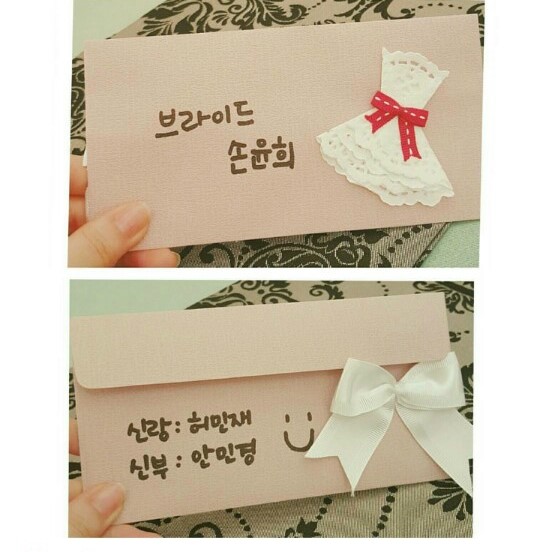 브라이드
손윤희
신랑 : 허민재
신부 : 안민경